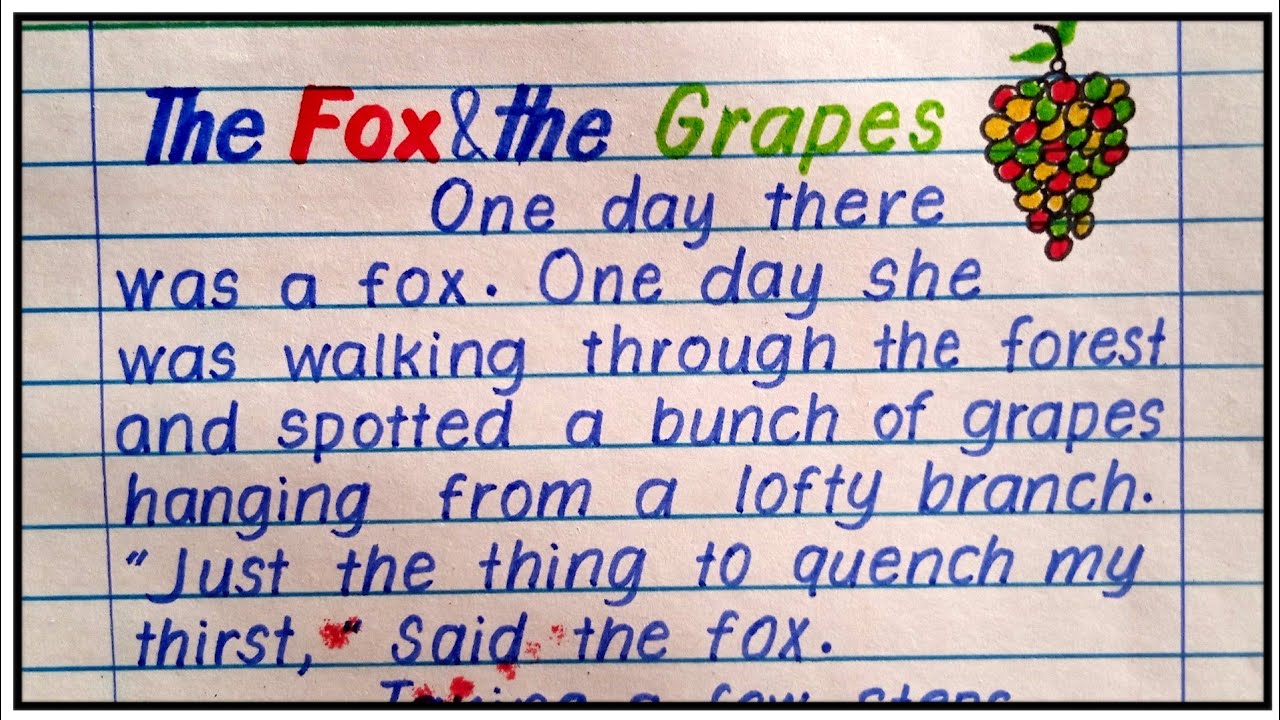 The Fox & the Grapes
One day there
was a fox. One day she
was walking through the forest
and spotted a bunch of grapes
hanging from a lofty branch.
"Just the thing to quench my
thirst," Said the fox.
Taking a few steps